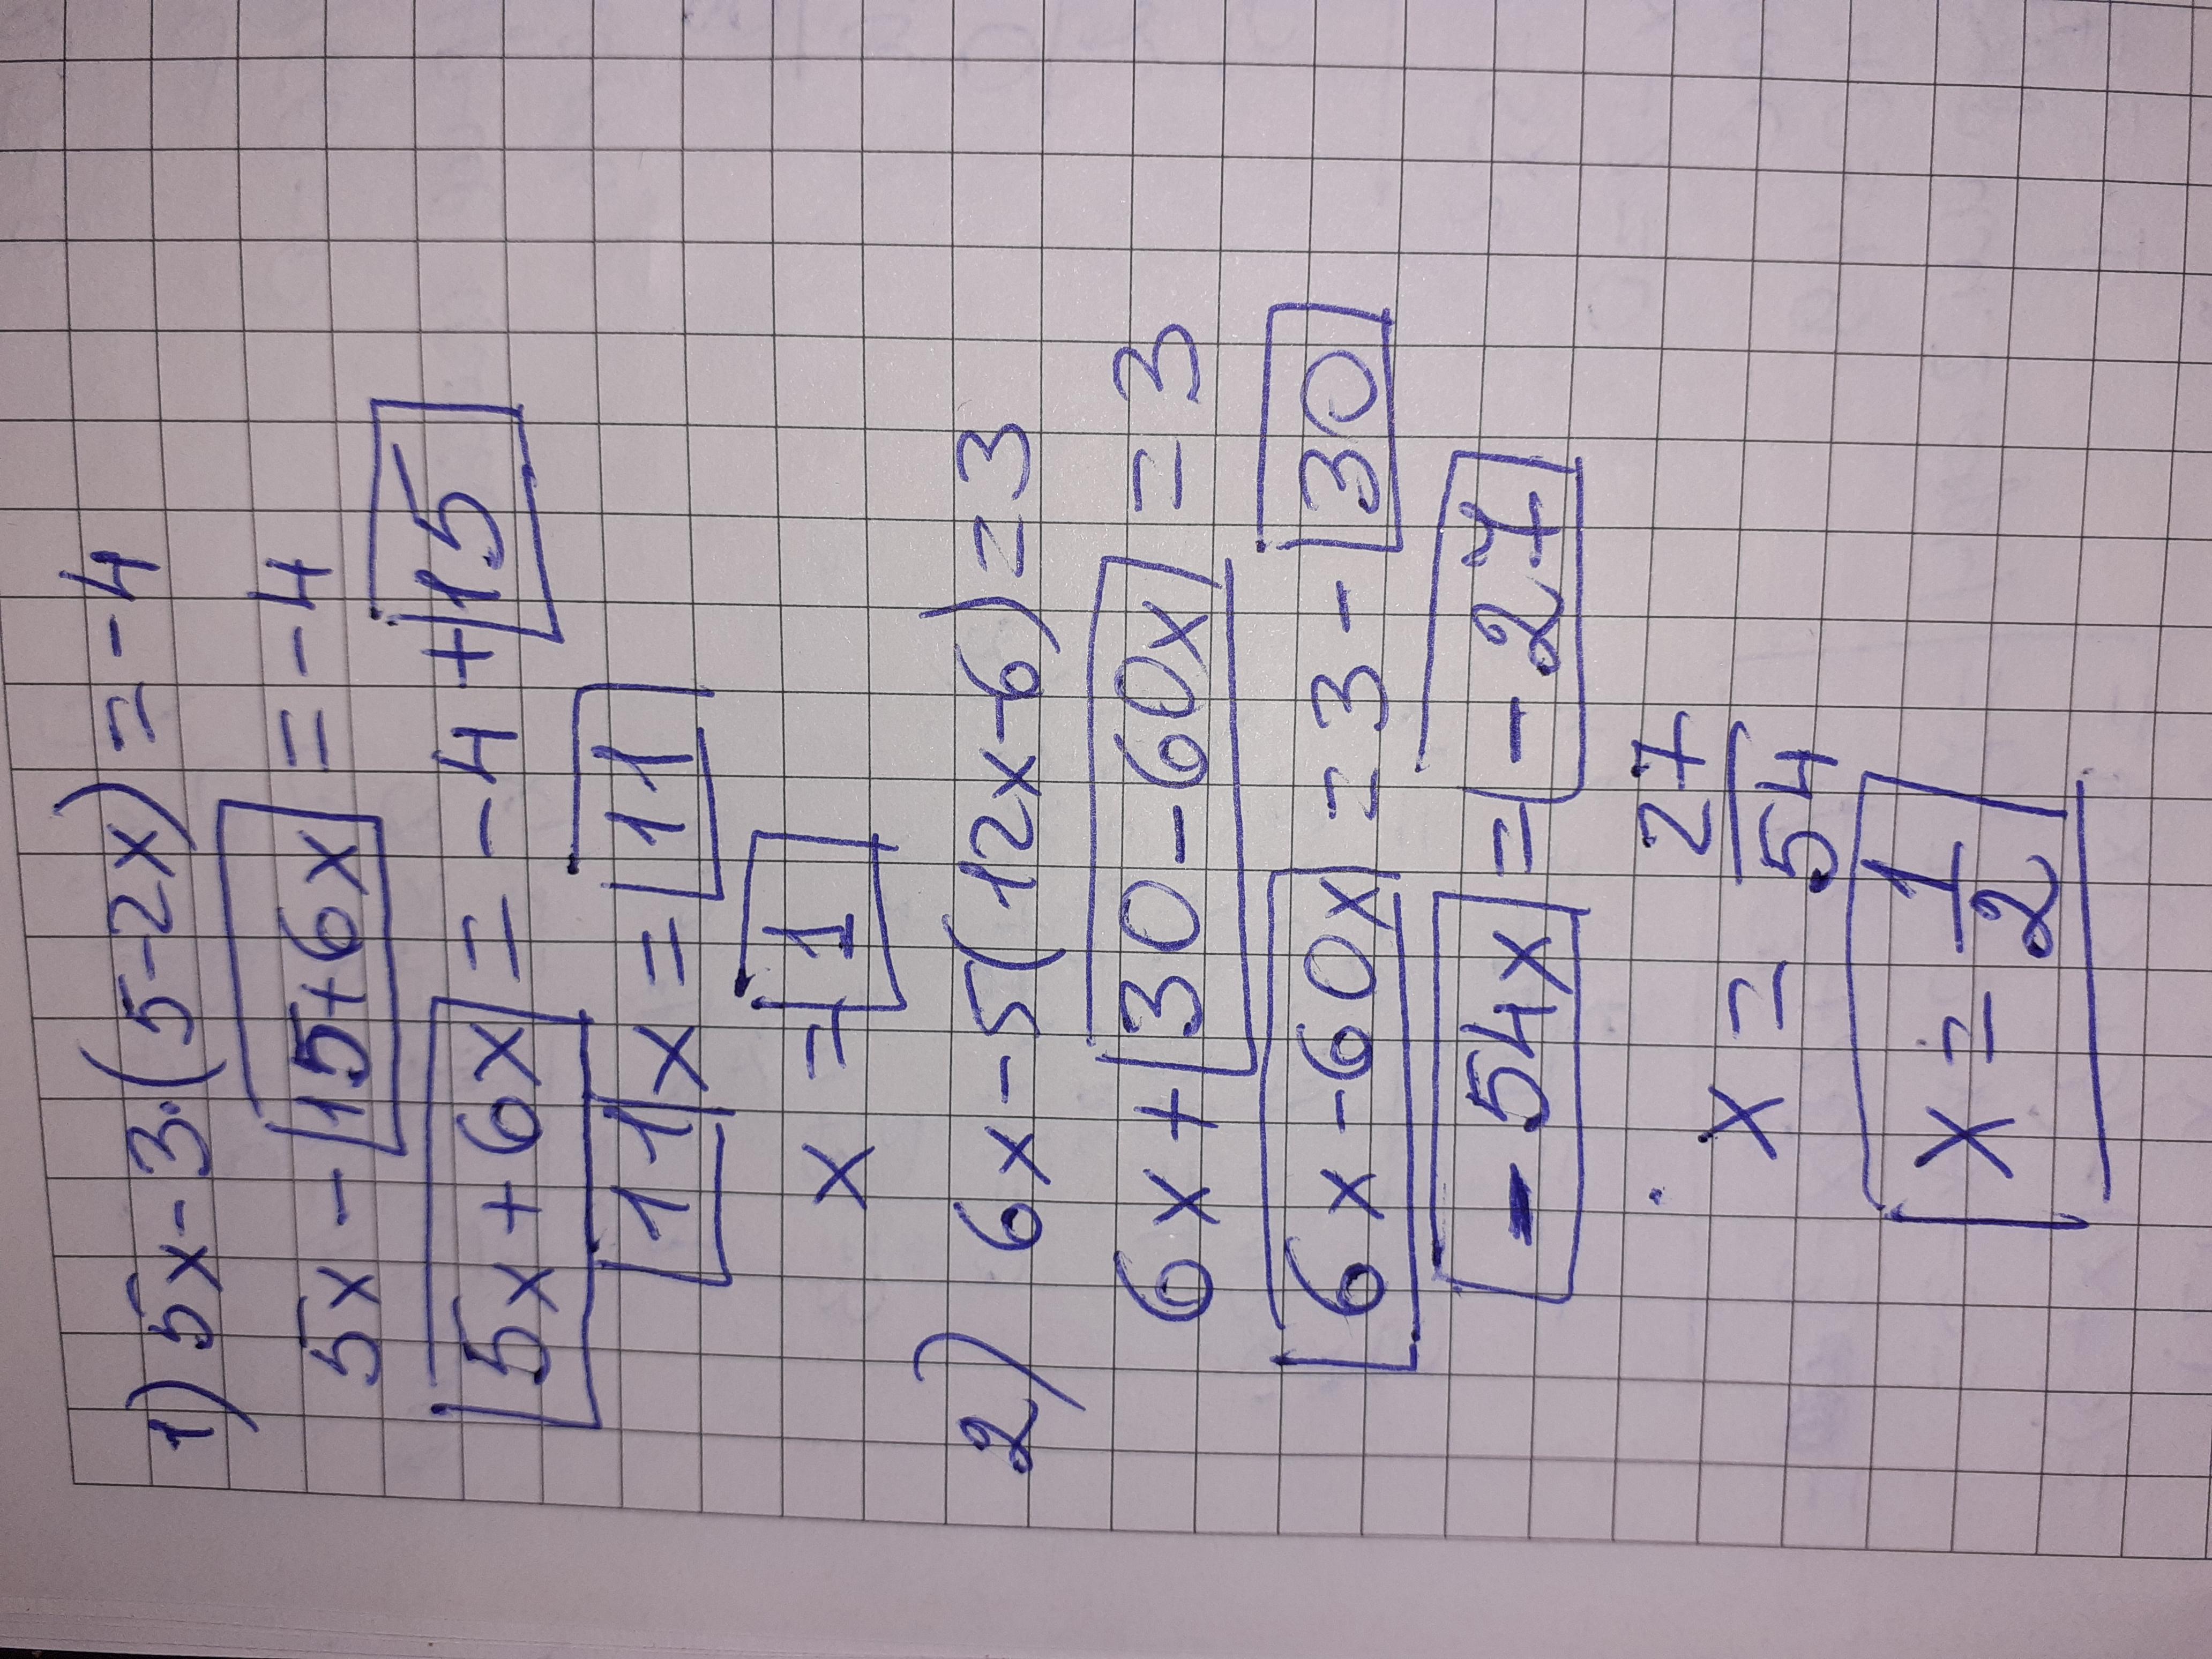 1) 5x-3·(5-2x)=-4
5x-15+6x=-4
5x+6x=-4+15
11x=11
x=1
2) 6x-5(12x-6)=3
6x+30-60x=3
6x-60x=3-30
-54x=-27
x=27/54
x=1/2